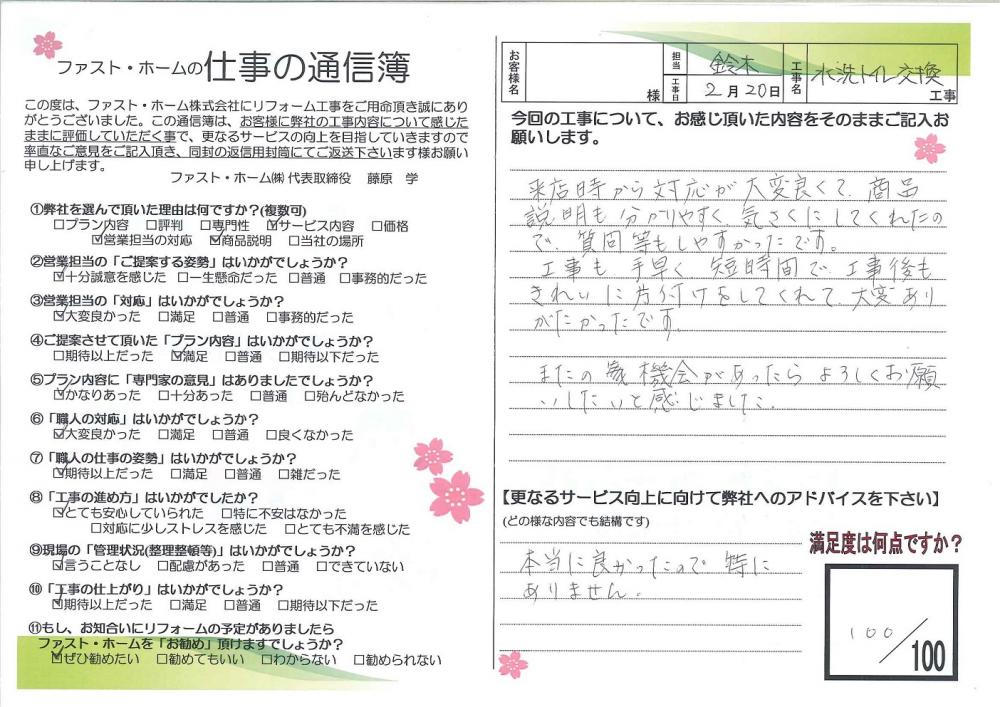 ファスト・ホームの仕事の通信簿
この度は、ファスト・ホーム株式会社にリフォーム工事をご用命頂き誠にあり
がとうございました。この通信簿は、お客様に弊社の工事内容について感じた
ままに評価していただく事で、更なるサービスの向上を目指していきますので
率直なご意見をご記入頂き、同封の返信用封筒にてご返送下さいます様お願い
申し上げます。
ファスト・ホーム㈱ 代表取締役 藤原 学
①弊社を選んで頂いた理由は何ですか?(複数可)
□プラン内容 □評判 □専門性 ☑サービス内容 □価格
☑営業担当の対応 ☑商品説明 □当社の場所
②営業担当の「ご提案する姿勢」はいかがでしょうか?
☑十分誠意を感じた □一生懸命だった □普通 □事務的だった
③営業担当の「対応」はいかがでしょうか?
☑大変良かった □満足 □普通 □事務的だった
④ご提案させて頂いた「プラン内容」はいかがでしょうか?
□期待以上だった ☑満足 □普通 □期待以下だった
⑤プラン内容に「専門家の意見」はありましたでしょうか?
☑かなりあった □十分あった □普通 □殆んどなかった
⑥「職人の対応」はいかがでしょうか?
☑大変良かった □満足 □普通 □良くなかった
⑦「職人の仕事の姿勢」はいかがでしょうか?
☑期待以上だった □満足 □普通 □雑だった
⑧「工事の進め方」はいかがでしたか?
☑とても安心していられた □特に不安はなかった
□対応に少しストレスを感じた □とても不満を感じた
⑨現場の「管理状況(整理整頓等)」はいかがでしょうか?
☑言うことなし □配慮があった □普通 □できていない
⑩「工事の仕上がり」はいかがでしょうか?
☑期待以上だった □満足 □普通 □期待以下だった
⑪もし、お知合いにリフォームの予定がありましたら
ファスト・ホームを「お勧め」頂けますでしょうか?
☑ぜひ勧めたい □勧めてもいい □わからない □勧められない
お客様名 様 担当 鈴木 工事日 2月20日 工事名 水洗トイレ交換 工事
今回の工事について、お感じ頂いた内容をそのままご記入お
願いします。
来店時から対応が大変良くて、商品
説明も分かりやすく気さくにしてくれたの
で、質問等もしやすかったです。
工事も手早く短時間で、工事後も
きれいに片付けをしてくれて、大変あり
がたかったです。
またの機会があったらよろしくお願
いしたいと感じました。
【更なるサービス向上に向けて弊社へのアドバイスを下さい】
(どの様な内容でも結構です)
本当に良かったので特に
ありません。
満足度は何点ですか?
100/100